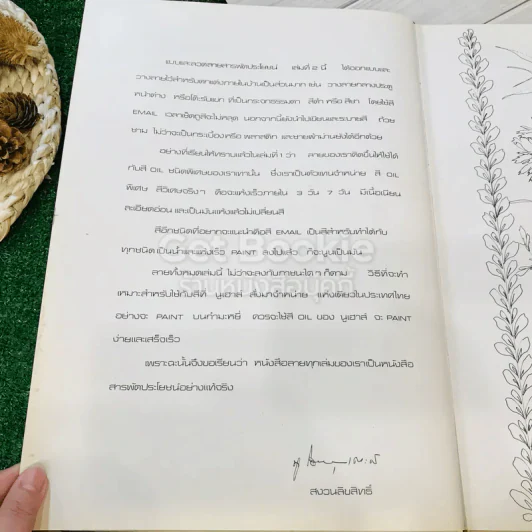 แบบและลวดลายสารพัดประโยชน์ เล่มที่ ๒ นี้ ได้ออกแบบและ
วางลายไว้สำหรับตกแต่งภายในบ้านเป็นส่วนมาก เช่น วางลายกลางประตู
หน้าต่าง หรือโต๊ะรับแขก ที่เป็นกระจกธรรมดา สีดำ หรือ สีชา โดยใช้สี
EMAIL เวลาเช็ดถูสีจะไม่หลุด นอกจากนี้ยังนำไปเขียนและระบายสี ถ้วย
ชาม ไม่ว่าจะเป็นกระเบื้อง หรือ พลาสติก และชายผ้าม่านยังได้อีกด้วย
อย่างที่เรียนให้ทราบแล้วในเล่มที่ 1 ว่า ลายของเราคิดขึ้นให้ใช้ได้
กับสี OIL ชนิดพิเศษของเราเท่านั้น ซึ่งเราเป็นตัวแทนจำหน่าย สี OIL
พิเศษ สีวิเศษจริงๆ คือจะแห้งเร็วภายใน 3 วัน 7 วัน มีเนื้อเนียน
ละเอียดอ่อน และเป็นมันแห้งแล้วไม่เปลี่ยนสี
สีอีกชนิดที่อยากจะแนะนำคือสี EMAIL เป็นสีสำหรับทำได้กับ
ทุกชนิด เป็นน้ำและแห้งเร็ว PAINT ลงไปแล้ว ก็จะนูนเป็นมัน
Get Bookie
ร้านหนังสือมุกดี้
ลายทั้งหมดเล่มนี้ ไม่ว่าจะลงกับภาชนะใดๆ ก็ตาม วิธีที่จะทำ
เหมาะสำหรับใช้กับสีที่ นูเฮาส์ สั่งมาจำหน่าย แห่งเดียวในประเทศไทย
อย่างจะ PAINT บนกำมะหยี่ ควรจะใช้สี OIL ของ นูเฮาส์ จะ PAINT
ง่ายและเสร็จเร็ว
เพราะฉะนั้นจึงขอเรียนว่า หนังสือลายทุกเล่มของเราเป็นหนังสือ
สารพัดประโยชน์อย่างแท้จริง
สงวนลิขสิทธิ์